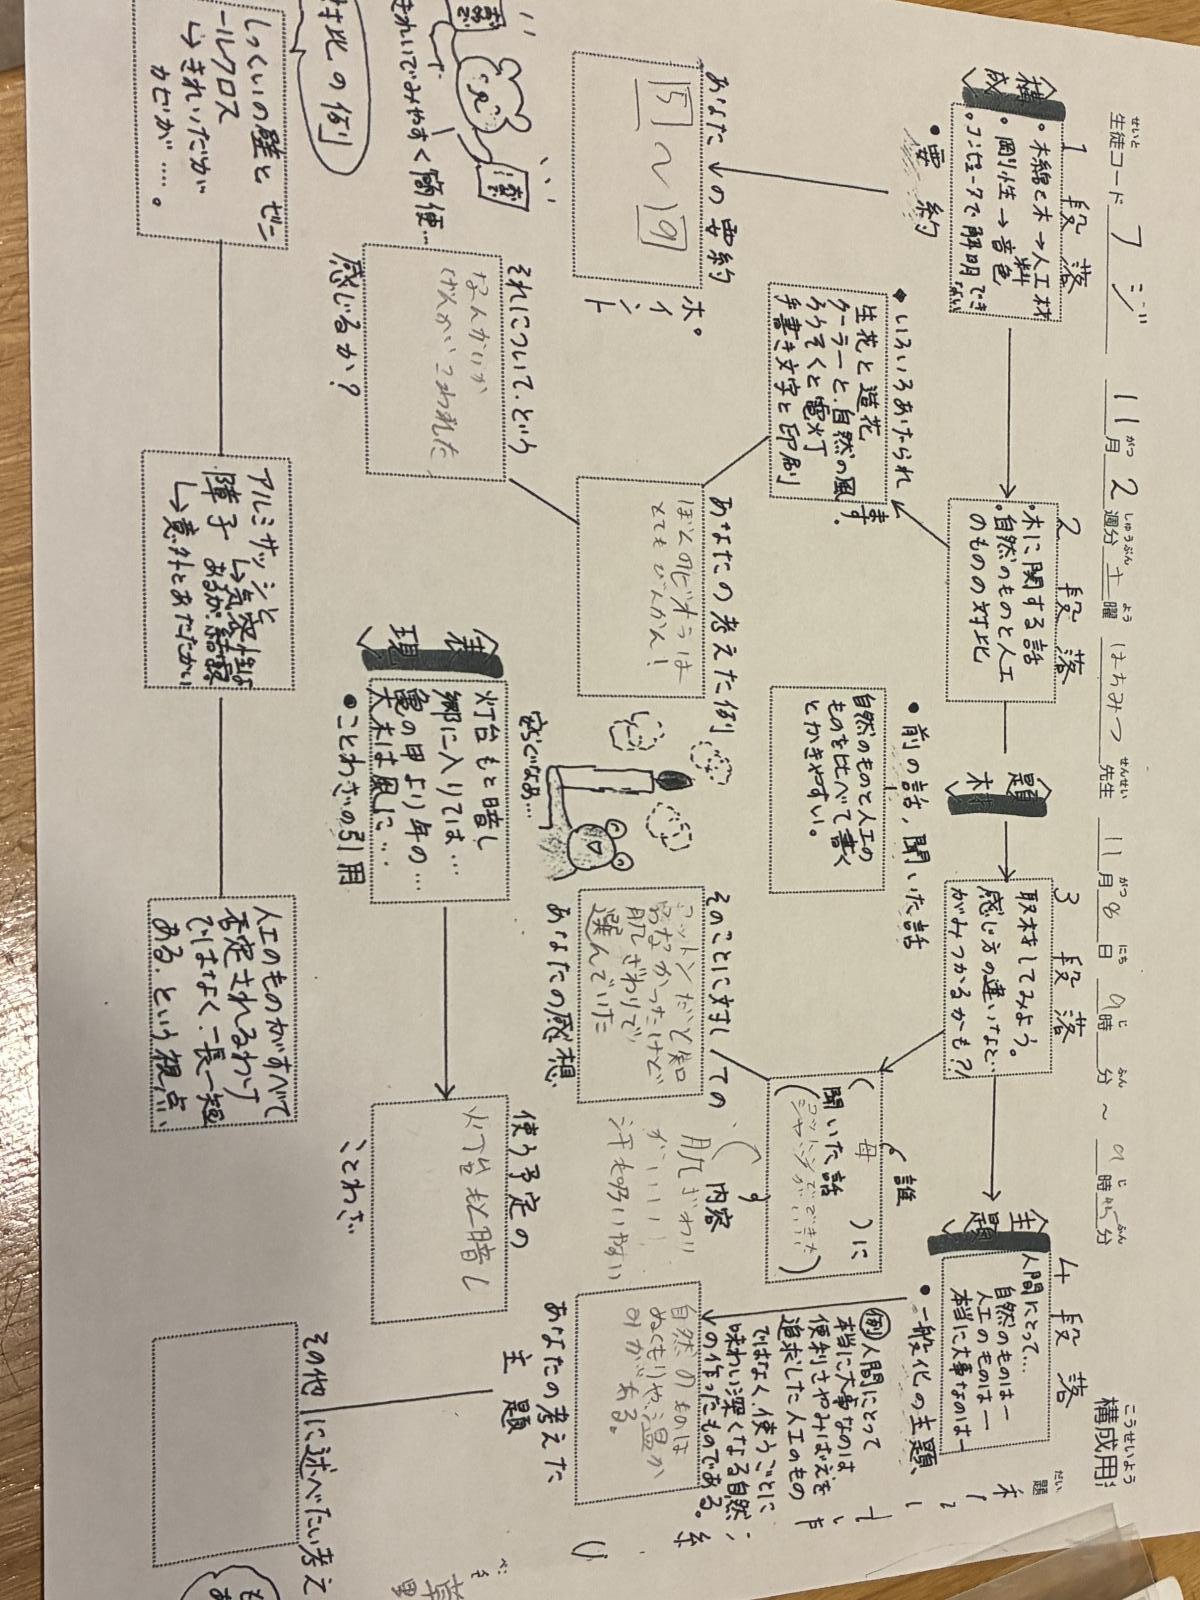 生徒コード フジ 11月2週分 土曜 はちみつ先生 11月8日 9時 分～9時45分
構成用
構成
1段落
・木綿と木→人工材料
・剛性→音色
・コンピュータで解明できない
・要約
あなたの要約
15～19
ポイント
2段落
・木に関する話
・自然のものと人工のものの対比
・いろいろあたられます。
生花と造花
クーラーと、自然の風
ろうそくと電灯
手書き文字と印刷
あなたの考えた例
ぼくのビオラは
とてもびんかん！
それについて、どういう
感じるか？
題材
3段落
取材をしてみよう。
感じ方の違いなど
がみつかるかも?!
・前の話，聞いた話
自然のものと人工の
ものを比べて書く
とかきやすい。
誰
（母）に
聞いた話
内容
肌ざわり
がいい
そのことに対しての
コットンだと知
らなかったけど
肌ざわりで、
選んでいた
あなたの感想
主題
4段落
人間にとって…
自然のものは—
人工のものは—
本当に大事なのは—
・一般化の主題、
例 人間にとって
本当に大事なのは
便利さやみばえを
追求した人工のもの
ではなく、使うごとに
味わい深くなる自然
の作ったものである。
自然のものは
ぬくもりや、温か
みがある。
あなたの考えた
主題
表現
灯台もと暗し
郷に入りては…
亀の甲より年の…
大木は風に…
・ことわざの引用
使う予定の
ことわざ
灯台もと暗し
寒くなあ…
きれいでみやすく簡便…
対比の例
しっくいの壁とビニールクロス
↳きれいだが
カビが……。
アルミサッシと
障子
↳気密性は
あるが、結露
↳意外とあたたかい
人工のものがすべて
否定されるわけ
ではなく、一長一短
ある、という視点、
その他に述べたい考え